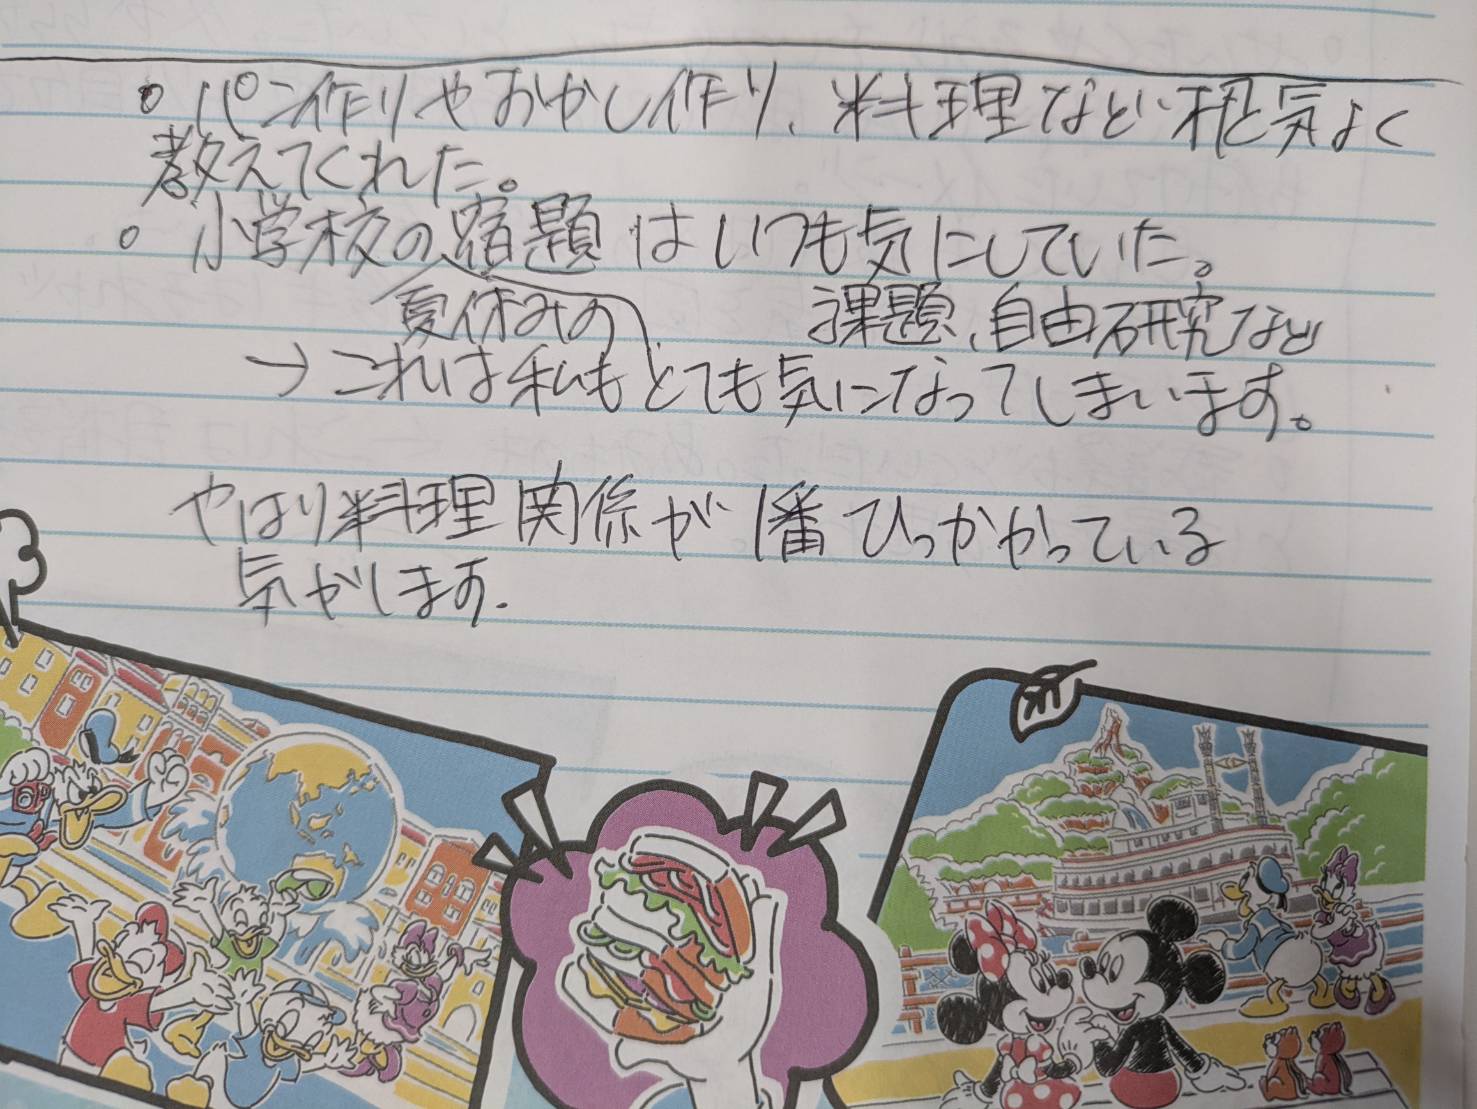 。パン作りやおかし作り、料理など、根気よく
教えてくれた。
。小学校の宿題はいつも気にしていた。
夏休みの 課題、自由研究など
→これは私もとても気になってしまいます。
やはり料理関係が1番ひっかかっている
気がします.